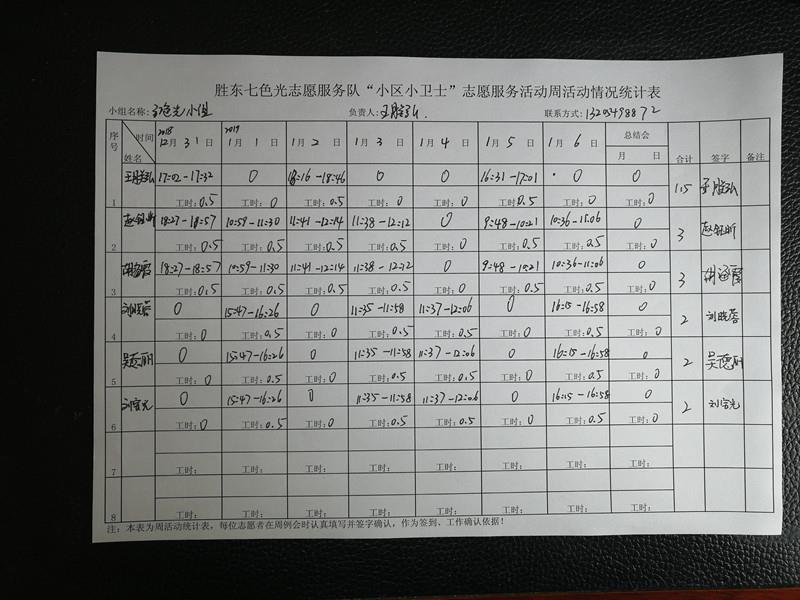 胜东七色光志愿服务队“小区小卫士”志愿服务活动周活动情况统计表
小组名称: 光小组 负责人: 联系方式:
序号 时间 姓名 2018 12月31日 2019 1月1日 1月2日 1月3日 1月4日 1月5日 1月6日 总结会 月 日 合计 签字 备注
17:02-17:32 0 18:16-18:46 0 0 16:31-17:01 0 0 1.5
1 工时:0.5 工时:0 工时:0.5 工时:0 工时:0 工时0.5 工时:0 工时:0
赵钰昕 18:27-18:57 10:59-11:30 11:41-12:14 11:38-12:12 0 9:48-10:21 10:36-11:06 0 3 赵钰昕
2 工时:0.5 工时:0.5 工时:0.5 工时:0.5 工时:0 工时:0.5 工时:0.5 工时:0
胡涵霄 18:27-18:57 10:59-11:30 11:41-12:14 11:38-12:12 0 9:48-10:21 10:36-11:06 0 3 胡涵霄
3 工时:0.5 工时:0.5 工时:0.5 工时:0.5 工时:0 工时:0.5 工时:0.5 工时:0
刘晓蓉 0 15:47-16:26 0 11:35-11:58 11:37-12:06 0 16:15-16:58 0 2 刘晓蓉
4 工时:0 工时:0.5 工时:0 工时:0.5 工时:0.5 工时:0 工时:0.5 工时:0
吴德丽 0 15:47-16:26 0 11:35-11:58 11:37-12:06 0 16:15-16:58 0 2 吴德丽
5 工时:0 工时:0.5 工时:0 工时:0.5 工时:0.5 工时:0 工时:0.5 工时:0
刘宗元 0 15:47-16:26 0 11:35-11:58 11:37-12:06 0 16:15-16:58 0 2 刘宗元
6 工时:0 工时:0.5 工时:0 工时:0.5 工时:0.5 工时:0 工时:0.5 工时:0
7 工时: 工时: 工时: 工时: 工时: 工时: 工时: 工时:
8 工时: 工时: 工时: 工时: 工时: 工时: 工时: 工时:
注:本表为周活动统计表,每位志愿者在周例会时认真填写并签字确认,作为签到、工作确认依据!